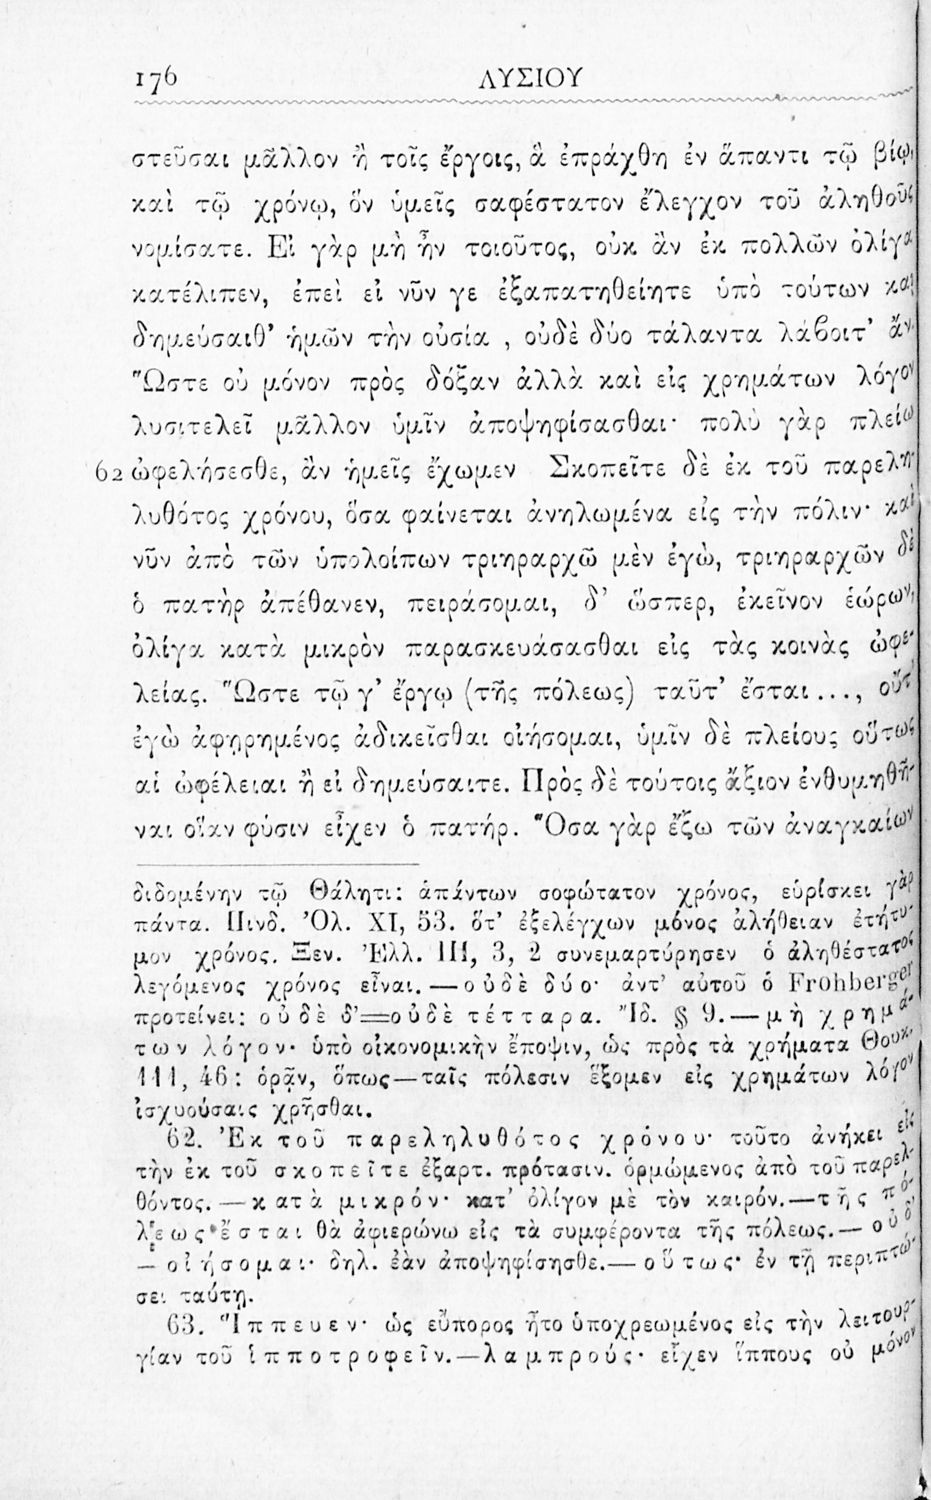 176 ΛΥΣΙΟΥ
στεῦσαι μᾶλλον ἢ τοῖς ἔργοις, ἃ ἐπράχθη ἐν ἅπαντι τῷ βίῳ,
καὶ τῷ χρόνῳ, ὃν ὑμεῖς σαφέστατον ἔλεγχον τοῦ ἀληθοῦς
νομίσατε. Εἰ γὰρ μὴ ἦν τοιοῦτος, οὐκ ἂν ἐκ πολλῶν ὀλίγα
κατέλιπεν, ἐπεὶ εἰ νῦν γε ἐξαπατηθείητε ὑπὸ τούτων καὶ
δημεύσαιθ' ἡμῶν τὴν οὐσία , οὐδὲ δύο τάλαντα λάβοιτ' ἄν.
Ὥστε οὐ μόνον πρὸς δόξαν ἀλλὰ καὶ εἰς χρημάτων λόγον
λυσιτελεῖ μᾶλλον ὑμῖν ἀποψηφίσασθαι· πολὺ γὰρ πλείω
62 ὠφελήσεσθε, ἂν ἡμεῖς ἔχωμεν Σκοπεῖτε δὲ ἐκ τοῦ παρελη-
λυθότος χρόνου, ὅσα φαίνεται ἀνηλωμένα εἰς τὴν πόλιν· καὶ
νῦν ἀπὸ τῶν ὑπολοίπων τριηραρχῶ μὲν ἐγὼ, τριηραρχῶν δὲ
ὁ πατὴρ ἀπέθανεν, πειράσομαι, δ' ὥσπερ, ἐκεῖνον ἑώρων,
ὀλίγα κατὰ μικρὸν παρασκευάσασθαι εἰς τὰς κοινὰς ὠφε-
λείας. Ὥστε τῷ γ' ἔργῳ (τῆς πόλεως) ταῦτ' ἔσται ..., οὔτ'
ἐγὼ ἀφῃρημένος ἀδικεῖσθαι οἰήσομαι, ὑμῖν δὲ πλείους οὕτως
αἱ ὠφέλειαι ἢ εἰ δημεύσαιτε. Πρὸς δὲ τούτοις ἄξιον ἐνθυμηθῆ-
ναι οἵαν φύσιν εἶχεν ὁ πατήρ. Ὅσα γὰρ ἔξω τῶν ἀναγκαίων
διδομένην τῷ Θάλητι: ἁπάντων σοφώτατον χρόνος, εὑρίσκει γὰρ
πάντα. Πινδ. Ὀλ. XI, 53. ὅτ' ἐξελέγχων μόνος ἀλήθειαν ἐτήτυ-
μον χρόνος. Ξεν. Ἑλλ. III, 3, 2 συνεμαρτύρησεν ὁ ἀληθέστατος
λεγόμενος χρόνος εἶναι. — οὐδὲ δύο· ἀντ' αὐτοῦ ὁ Frohberger
προτείνει: οὐδὲ δ'=οὐδὲ τέτταρα. Ἴδ. § 9. — μὴ χρημά-
των λόγον· ὑπὸ οἰκονομικὴν ἔποψιν, ὡς πρὸς τὰ χρήματα Θουκ.
III, 46: ὁρᾶν, ὅπως — ταῖς πόλεσιν ἕξομεν εἰς χρημάτων λόγον
ἰσχυούσαις χρῆσθαι.
62. Ἐκ τοῦ παρεληλυθότος χρόνου· τοῦτο ἀνήκει εἰς
τὴν ἐκ τοῦ σκοπεῖτε ἐξαρτ. πρότασιν. ὁρμώμενος ἀπὸ τοῦ παρελ-
θόντος. — κατὰ μικρόν· κατ' ὀλίγον μὲ τὸν καιρόν. — τῆς πό-
λεως ἔσται θὰ ἀφιερώνω εἰς τὰ συμφέροντα τῆς πόλεως. — οὐδ'
— οἰήσομαι· δηλ. ἐὰν ἀποψηφίσησθε. — οὕτως· ἐν τῇ περιπτώ-
σει ταύτῃ.
63. Ἵππευεν· ὡς εὔπορος ἦτο ὑποχρεωμένος εἰς τὴν λειτουρ-
γίαν τοῦ ἱπποτροφεῖν. — λαμπρούς· εἶχεν ἵππους οὐ μόνον